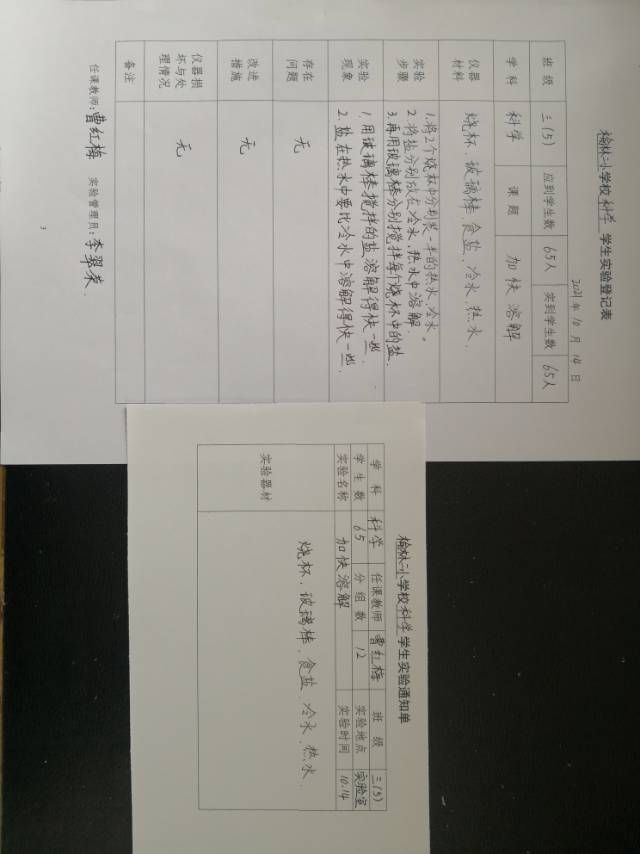 榆林二小学校科学学生实验登记表
2021年10月14日
班级 三(5) 应到学生数 65人 实到学生数 65人
学科 科学 课题 加快溶解
仪器材料 烧杯、玻璃棒、食盐、冷水、热水.
实验步骤 1.将2个烧杯中分别装一半的热水、冷水。
2.将盐分别放在冷水、热水中溶解.
3.再用玻璃棒分别搅拌每个烧杯中的盐.
实验现象 1.用玻璃棒搅拌的盐溶解得快一些.
2.盐在热水中要比冷水中溶解得快一些.
存在问题 无
改进措施 无
仪器损坏与处理情况 无
备注
任课教师:曹红梅 实验管理员:李翠表.
3
榆林二小学校科学学生实验通知单
学科 科学 任课教师 曹红梅 班级 三(5)
学生数 65 分组数 12 实验地点 实验室
实验名称 加快溶解 实验时间 10.14
实验器材 烧杯、玻璃棒、食盐、冷水、热水.